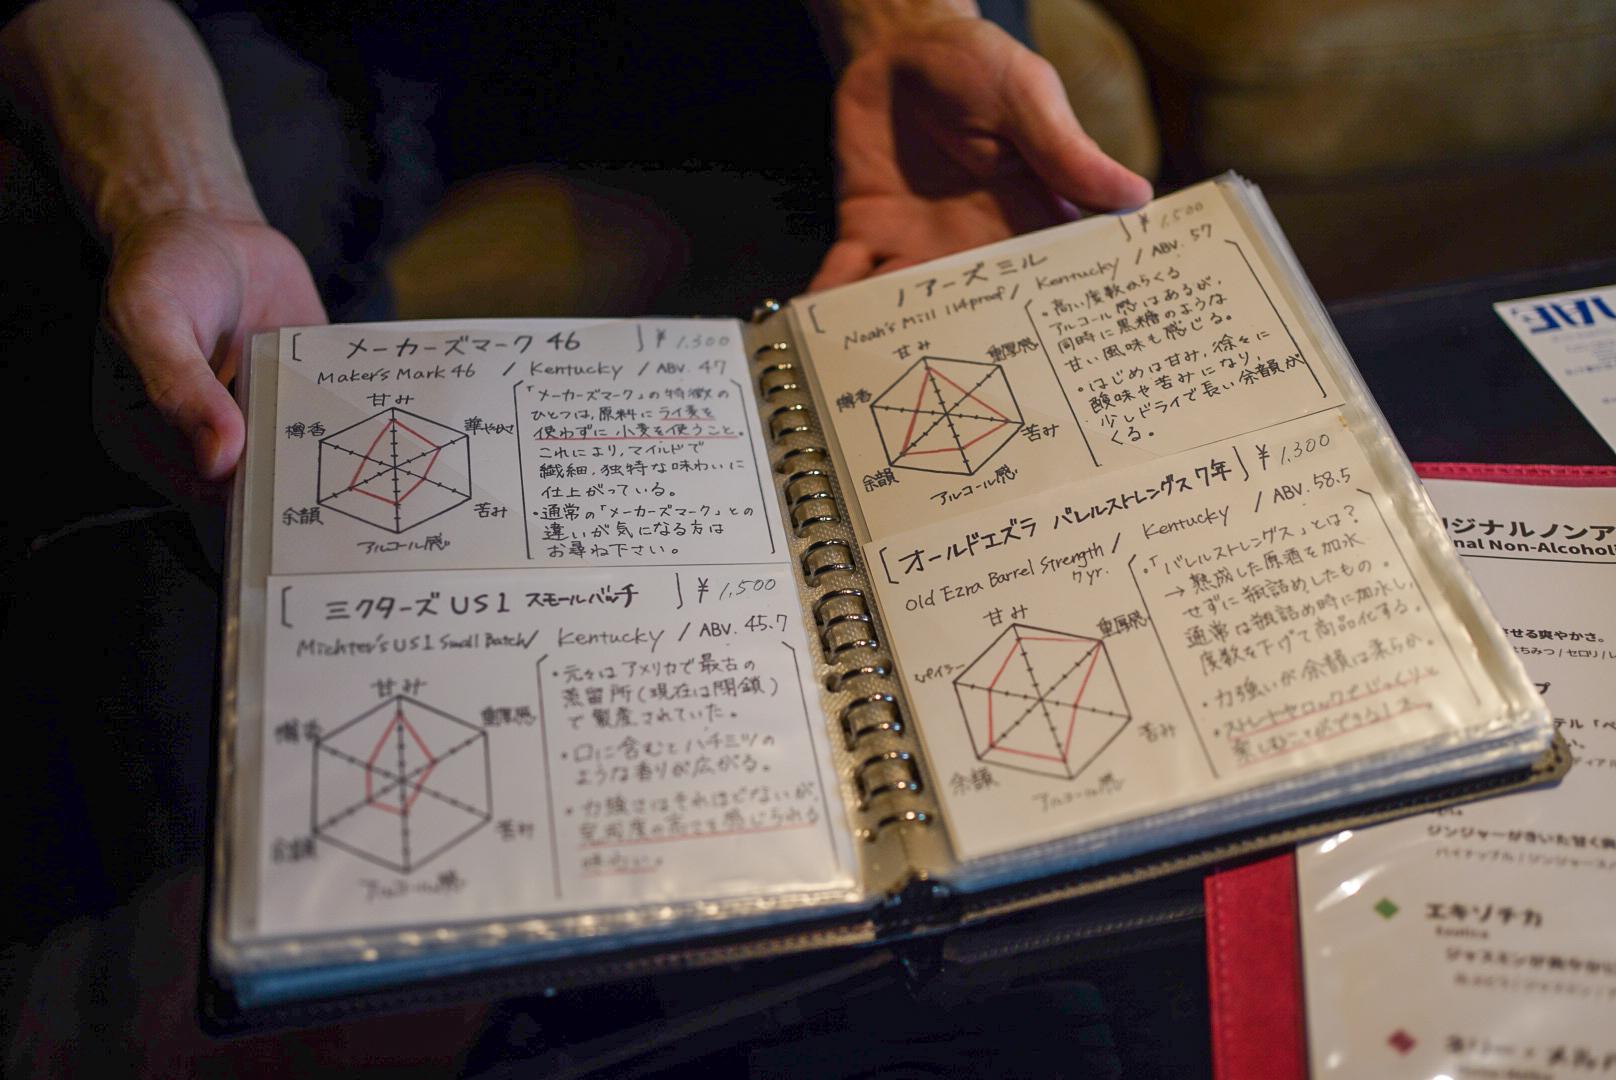 [ メーカーズマーク 46 ] ¥ 1,300
Maker's Mark 46 / Kentucky / ABV. 47
甘み
華やかさ
苦み
アルコール感
余韻
樽香
「メーカーズマーク」の特徴の
ひとつは、原料にライ麦を
使わずに小麦を使うこと。
これにより、マイルドで
繊細、独特な味わいに
仕上がっている。
・通常の「メーカーズマーク」との
違いが気になる方は
お尋ね下さい。
[ ミクターズ US1 スモールバッチ ] ¥ 1,500
Michter's US1 Small Batch / Kentucky / ABV. 45.7
甘み
重厚感
苦み
アルコール感
余韻
樽香
・元々はアメリカで最古の
蒸留所(現在は閉鎖)
で製産されていた。
・口に含むとハチミツの
ような香りが広がる。
・力強さはそれほどないが、
完成度の高さを感じられる
味わい。
[ ノアーズミル ] ¥ 1,500
Noah's Mill 114proof / Kentucky / ABV. 57
甘み
重厚感
苦み
アルコール感
余韻
樽香
・高い度数からくる
アルコール感はあるが、
同時に黒糖のような
甘い風味も感じる。
・はじめは甘み、徐々に
酸味や苦みになり、
少しドライで長い余韻が
くる。
[ オールドエズラ バレルストレングス 7年 ] ¥ 1,300
Old Ezra Barrel Strength 7yr. / Kentucky / ABV. 58.5
甘み
重厚感
苦み
アルコール感
余韻
スパイシー
・「バレルストレングス」とは?
→ 熟成した原酒を加水
せずに瓶詰めしたもの。
通常は瓶詰め時に加水し、
度数を下げて商品化する。
・力強いが余韻は柔らか。
・ストレートやロックでじっくりと
楽しむことができる1本。
リジナルノンア
nal Non-Alcohol
させる爽やかさ。
はちみつ / セロリ / レ
プ
テル「ペ
ディアル
ジンジャーがきいた甘く爽
パイナップル / ジンジャース
エキゾチカ
Exotica
ジャスミンが爽やか